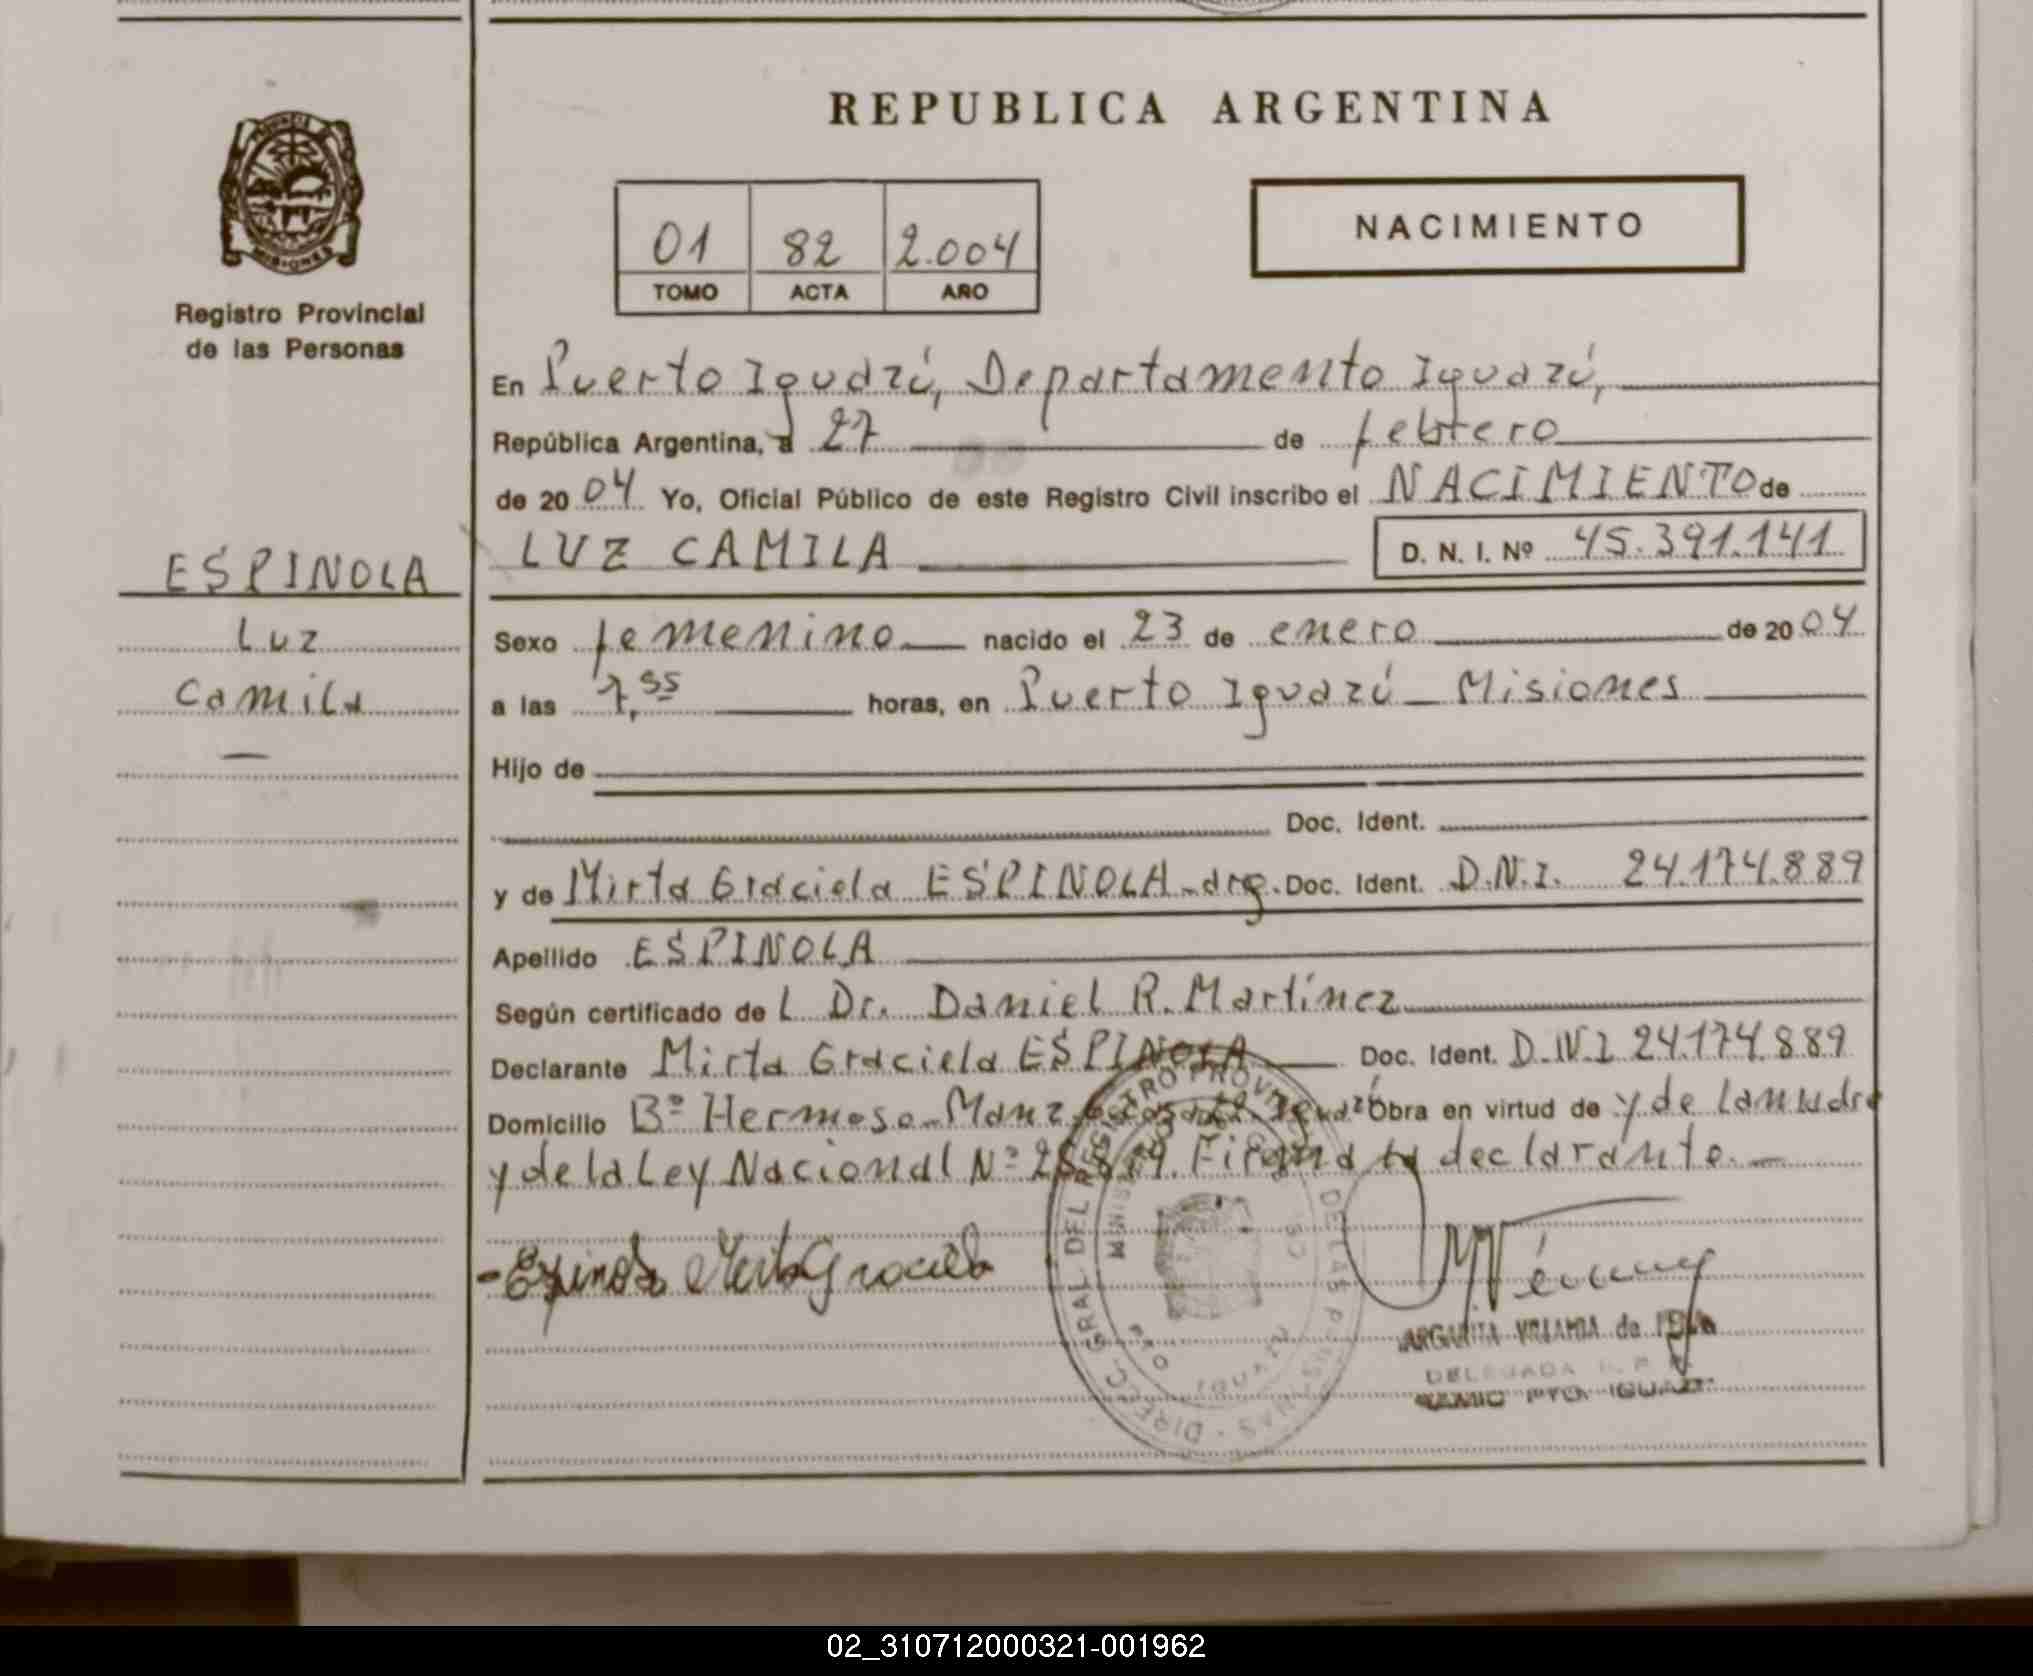 REPUBLICA ARGENTINA
01 82 2.004
TOMO ACTA AÑO
NACIMIENTO
PROVINCIA DE
MISIONES
Registro Provincial
de las Personas
En Puerto Iguazú, Departamento Iguazú,
República Argentina, a 27 de febrero
de 2004 Yo, Oficial Público de este Registro Civil inscribo el NACIMIENTO de
LUZ CAMILA D. N. I. Nº 45.391.141
ESPINOLA
Luz
Camila
Sexo femenino nacido el 23 de enero de 2004
a las 7,55 horas, en Puerto Iguazú - Misiones
Hijo de
Doc. Ident.
y de Mirta Graciela ESPINOLA - arg. Doc. Ident. D.N.I. 24.174.889
Apellido ESPINOLA
Según certificado de L Dr. Daniel R. Martínez
Declarante Mirta Graciela ESPINOLA Doc. Ident. D.N.I 24.174.889
Domicilio Bº Hermoso - Manz. Iguazú Obra en virtud de y de la madre
y de la Ley Nacional Nº Firma la declarante.-
- Espinola Mirta Graciela
DIREC. GRAL DEL REGISTRO PROVINCIAL DE LAS PERSONAS
IGUAZU
DELEGADA
PTO. IGUAZU
02_310712000321-001962